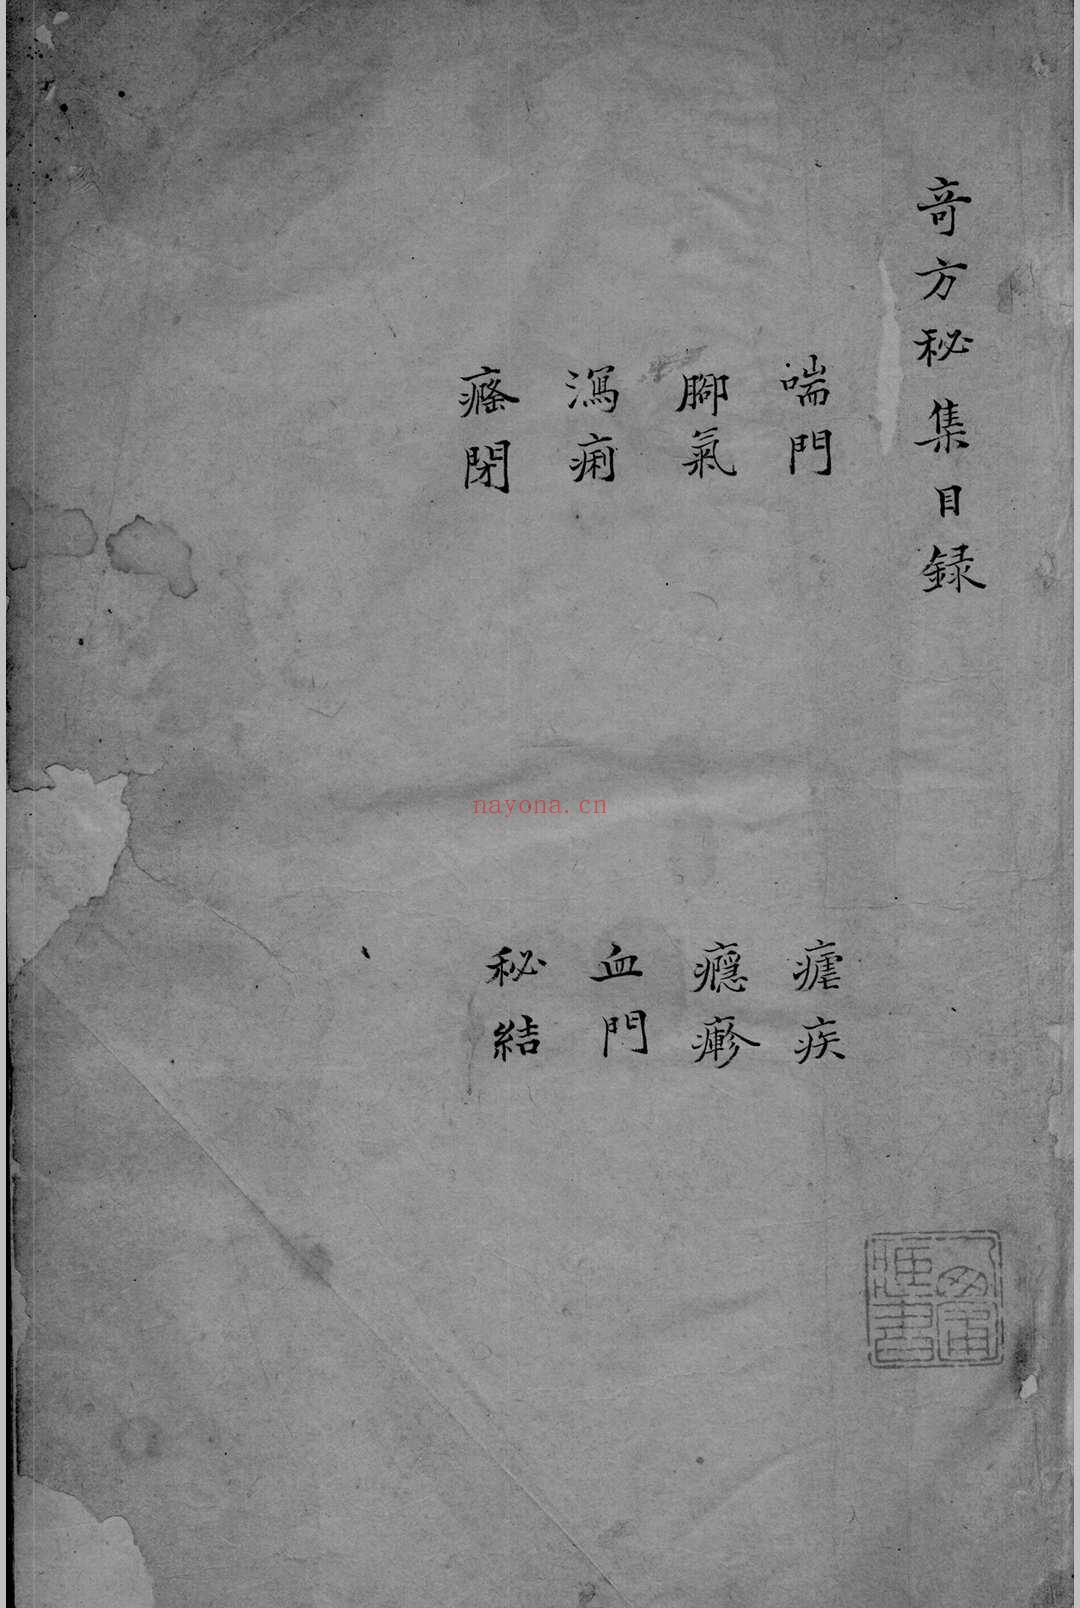 竒方秘集目録
喘門
瘧疾
腳氣
癮瘮
瀉痢
血門
癃閉
秘結
nayona.cn